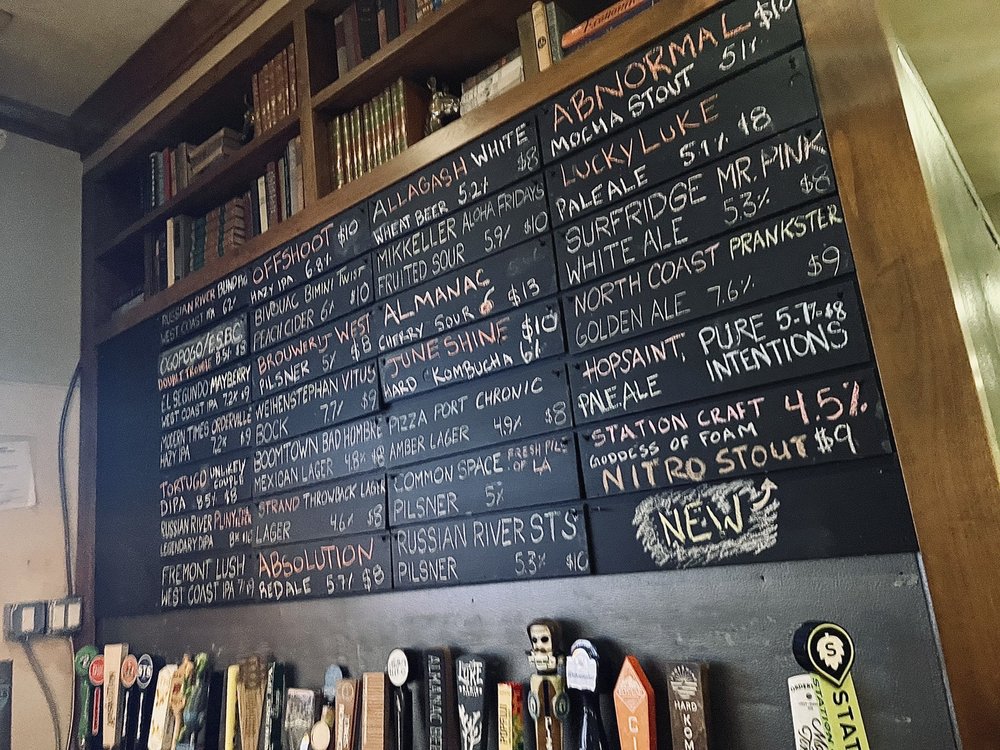 RUSSIAN RIVER BLIND PIG
WEST COAST IPA 6%
OGOPOGO/ESBC
DOUBLE TROUBLE 8.5% $8
EL SEGUNDO MAYBERRY
WEST COAST IPA 7.2% $9
MODERN TIMES ORDERVILLE
HAZY IPA 7.2% $9
TORTUGO UNLIKELY COUPLE
DIPA 8.5% $8
RUSSIAN RIVER PLINY THE ELDER
LEGENDARY DIPA 8%
FREMONT LUSH
WEST COAST IPA 7%
OFFSHOOT $10
HAZY IPA 6.8%
BIVOUAC BIMINI TWIST
PEACH CIDER 6% $10
BROUWERIJ WEST
PILSNER 5% $8
WEIHENSTEPHAN VITUS
BOCK 7.7% $9
BOOMTOWN BAD HOMBRE
MEXICAN LAGER 4.8% $8
STRAND THROWBACK LAGER
LAGER 4.6% $8
ABSOLUTION
RED ALE 5.7% $8
ALLAGASH WHITE
WHEAT BEER 5.2% $8
MIKKELLER ALOHA FRIDAYS
FRUITED SOUR 5.9% $10
ALMANAC
CHERRY SOUR 6 $13
JUNE SHINE $10
HARD KOMBUCHA 6%
PIZZA PORT CHRONIC
AMBER LAGER 4.9% $8
COMMON SPACE FRESH PILS OF LA
PILSNER 5%
RUSSIAN RIVER STS
PILSNER 5.3% $10
ABNORMAL $10
MOCHA STOUT 5.1%
LUCKY LUKE
PALE ALE 5.1% $8
SURFRIDGE MR. PINK
WHITE ALE 5.3% $8
NORTH COAST PRANKSTER
GOLDEN ALE 7.6% $9
HOPSAINT, PURE 5.7% $8
PALE ALE INTENTIONS
STATION CRAFT 4.5%
GODDESS OF FOAM
NITRO STOUT $9
NEW
STS
ALMANAC BEER
LUKE
HARD KOM
S
STATION
STAT